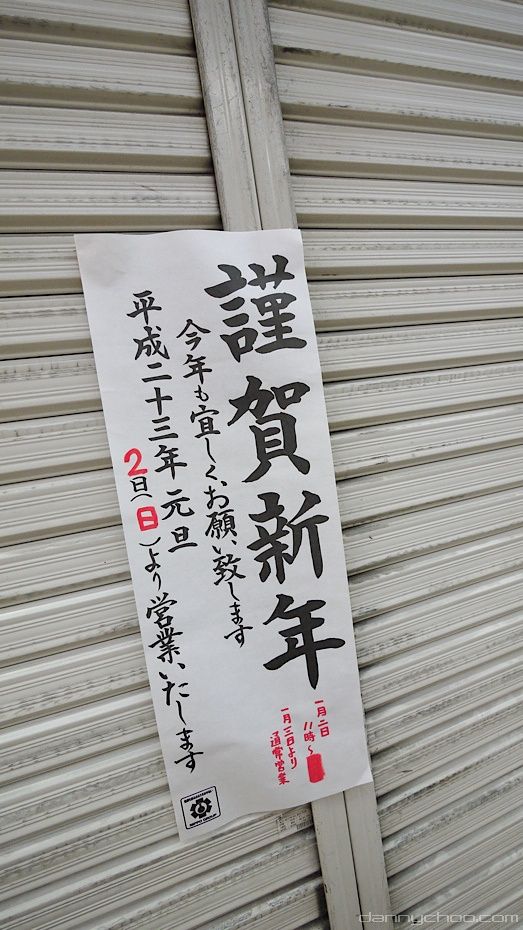 謹賀新年
今年も宜しくお願い致します
平成二十三年 元旦
2日(日)より営業いたします
一月二日
11時~
一月三日より
通常営業
dannychoo.com